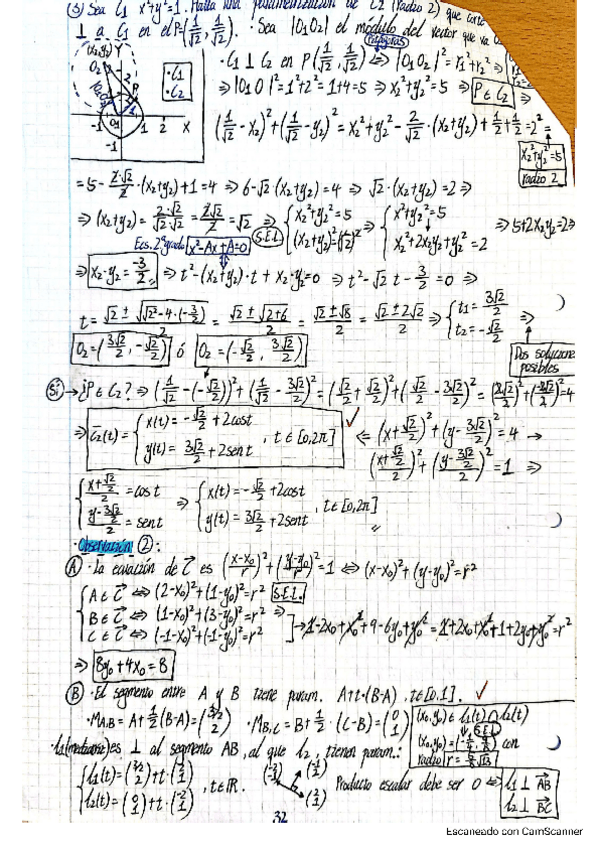 ③ Sea C₁ x²+y²=1. Halla una parametrización de C2 (radio 2) que corte
⊥ a C₁ en el P=(1/√2, 1/√2). · Sea |O₁O₂| el módulo del vector que va
(x₂,y₂) Y
O₂
·C₁
·C₂
-1 O₁ 1 2 X
-1
· C₁ ⊥ C₂ en P(1/√2, 1/√2) ⇔ |O₁O₂|² = r₁²+r₂² ⇒
⇒ |O₁O|² = 1²+2² = 1+4 = 5 ⇒ x₂²+y₂² = 5 ⇒ P ∈ C₂ ⇒
(1/√2 - x₂)² + (1/√2 - y₂)² = x₂²+y₂² - 2/√2 · (x₂+y₂) + 1/2 + 1/2 = 2² =
x₂²+y₂²=5
radio 2
= 5 - 2·√2/2 · (x₂+y₂) + 1 = 4 ⇒ 6-√2 (x₂+y₂) = 4 ⇒ √2 · (x₂+y₂) = 2 ⇒
⇒ (x₂+y₂) = 2·√2/√2√2 = 2√2/2 = √2 ⇒ { x₂²+y₂² = 5 ; (x₂+y₂)² = (√2)² ⇒ { x²+y₂² = 5 ; x₂²+2x₂y₂+y₂² = 2 ⇒ 5+2x₂y₂=2 ⇒
Ecs. 2º grado x²-Ax+A=0 S.E.L.
⇒ x₂·y₂ = -3/2 ⇒ t² - (x₂+y₂)·t + x₂·y₂ = 0 ⇒ t² - √2 t - 3/2 = 0 ⇒
t = √2 ± √(√2² - 4·(-3/2)) / 2 = √2 ± √(2+6) / 2 = √2 ± √8 / 2 = √2 ± 2√2 / 2 ⇒ { t₁ = 3√2/2 ; t₂ = -√2/2 ⇒
O₂ = (3√2/2, -√2/2) ó O₂ = (-√2/2, 3√2/2)
Dos solucione
posibles
Sí → ¿P ∈ C₂? ⇒ (1/√2 - (-√2/2))² + (1/√2 - 3√2/2)² = (√2/2 + √2/2)² + (√2/2 - 3√2/2)² = (2√2/2)² + (-2√2/2)² = 4
⇒ C₂(t) = { x(t) = -√2/2 + 2cost ; y(t) = 3√2/2 + 2sent , t ∈ [0,2π] ⇐ (x+√2/2)² + (y-3√2/2)² = 4 →
((x+√2/2)/2)² + ((y-3√2/2)/2)² = 1 ⇒
{ (x+√2/2)/2 = cos t ; (y-3√2/2)/2 = sent ⇒ { x(t) = -√2/2 + 2cost ; y(t) = 3√2/2 + 2sent , t ∈ [0,2π]
· Observación ②:
Ⓐ · La ecuación de C es ((x-x₀)/r)² + ((y-y₀)/r)² = 1 ⇔ (x-x₀)² + (y-y₀)² = r²
{ A ∈ C ⇔ (2-x₀)² + (1-y₀)² = r² S.E.L.
B ∈ C ⇔ (1-x₀)² + (3-y₀)² = r² ⇒
C ∈ C ⇔ (-1-x₀)² + (-1-y₀)² = r² → 1-2x₀+x₀²+9-6y₀+y₀² = 1+2x₀+x₀²+1+2y₀+y₀² = r²
⇒ 8y₀+4x₀ = 8
Ⓑ · El segmento entre A y B tiene param. A+t·(B-A), t∈[0,1].
· M_A,B = A + 1/2 (B-A) = (3/2, 2) · M_B,C = B + 1/2 · (C-B) = (0, 1)
(x₀,y₀) ∈ l₁(t) ∩ l₂(t)
S.E.L.
· l₁(mediatriz) es ⊥ al segmento AB, al que l₂, tienen param.:
{ l₁(t) = (3/2, 2) + t·(2, 1) ; l₂(t) = (0, 1) + t·(-2, 1) , t∈ℝ.
Producto escalar debe ser 0 ⇔ l₁ ⊥ AB
l₂ ⊥ BC
32
Escaneado con CamScanner